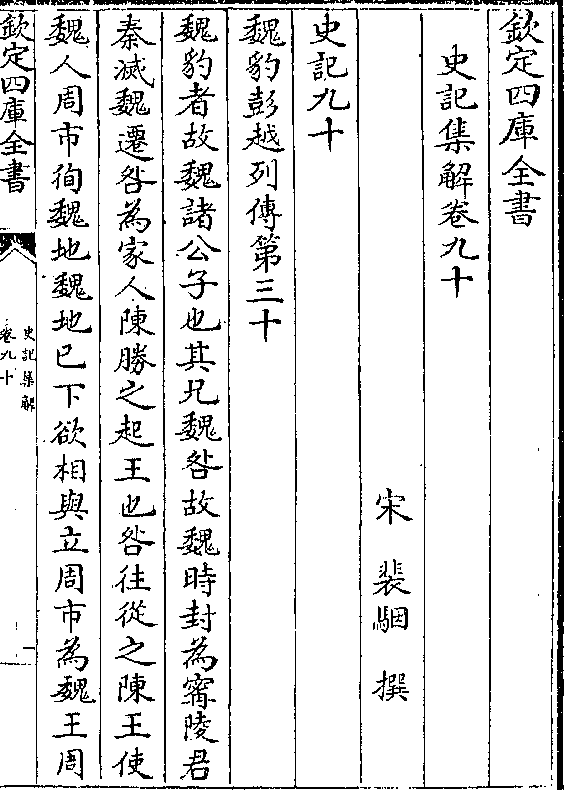 欽定四庫全書
史記集解卷九十
宋 裴駰 撰
史記九十
魏豹彭越列傳第三十
魏豹者故魏諸公子也其兄魏咎故魏時封為甯陵君
秦滅魏遷咎為家人陳勝之起王也咎往從之陳王使
魏人周市徇魏地魏地已下欲相與立周市為魏王周
欽定四庫全書
史記集解
卷九十
一